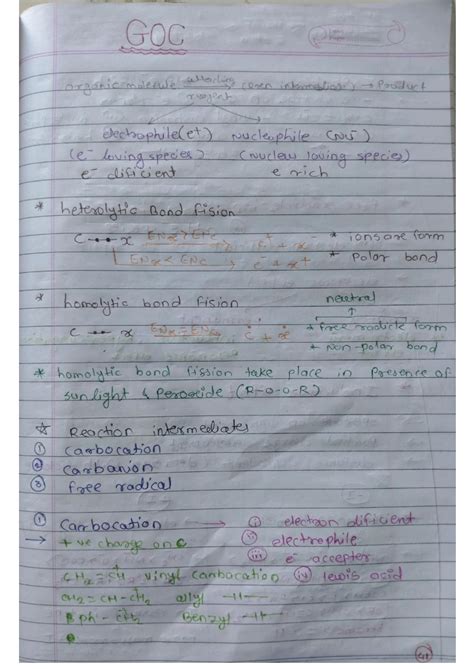 GOC
organic molecule attacking reagent → Product
electrophile (e+) Nucleophile (Nu-)
(e- loving species) (nuclear loving species)
e- dificient e rich
* heterolytic Bond fision
C •-• x ENx > ENc C+ + x- * ions are form
ENx < ENc c- + x+ * Polar bond
* homolytic bond fision neutral
C •-• x ENx = ENc ċ + ẋ * free radicle form
* Non-polar bond
* homolytic bond fission take place in Presence of
sunlight & Peroxide (R-O-O-R)
☆ Reaction intermediates
① carbocation
② carbanion
③ free radical
① Carbocation → ⓘ electron dificient
→ +ve charge on C ⓘⓘ electrophile
ⓘⓘⓘ e- accepter
CH2=CH+ vinyl carbocation ⓘⓥ lewis acid
CH2=CH-CH2+ ally -11-
ph-CH2+ Benzyl -11-